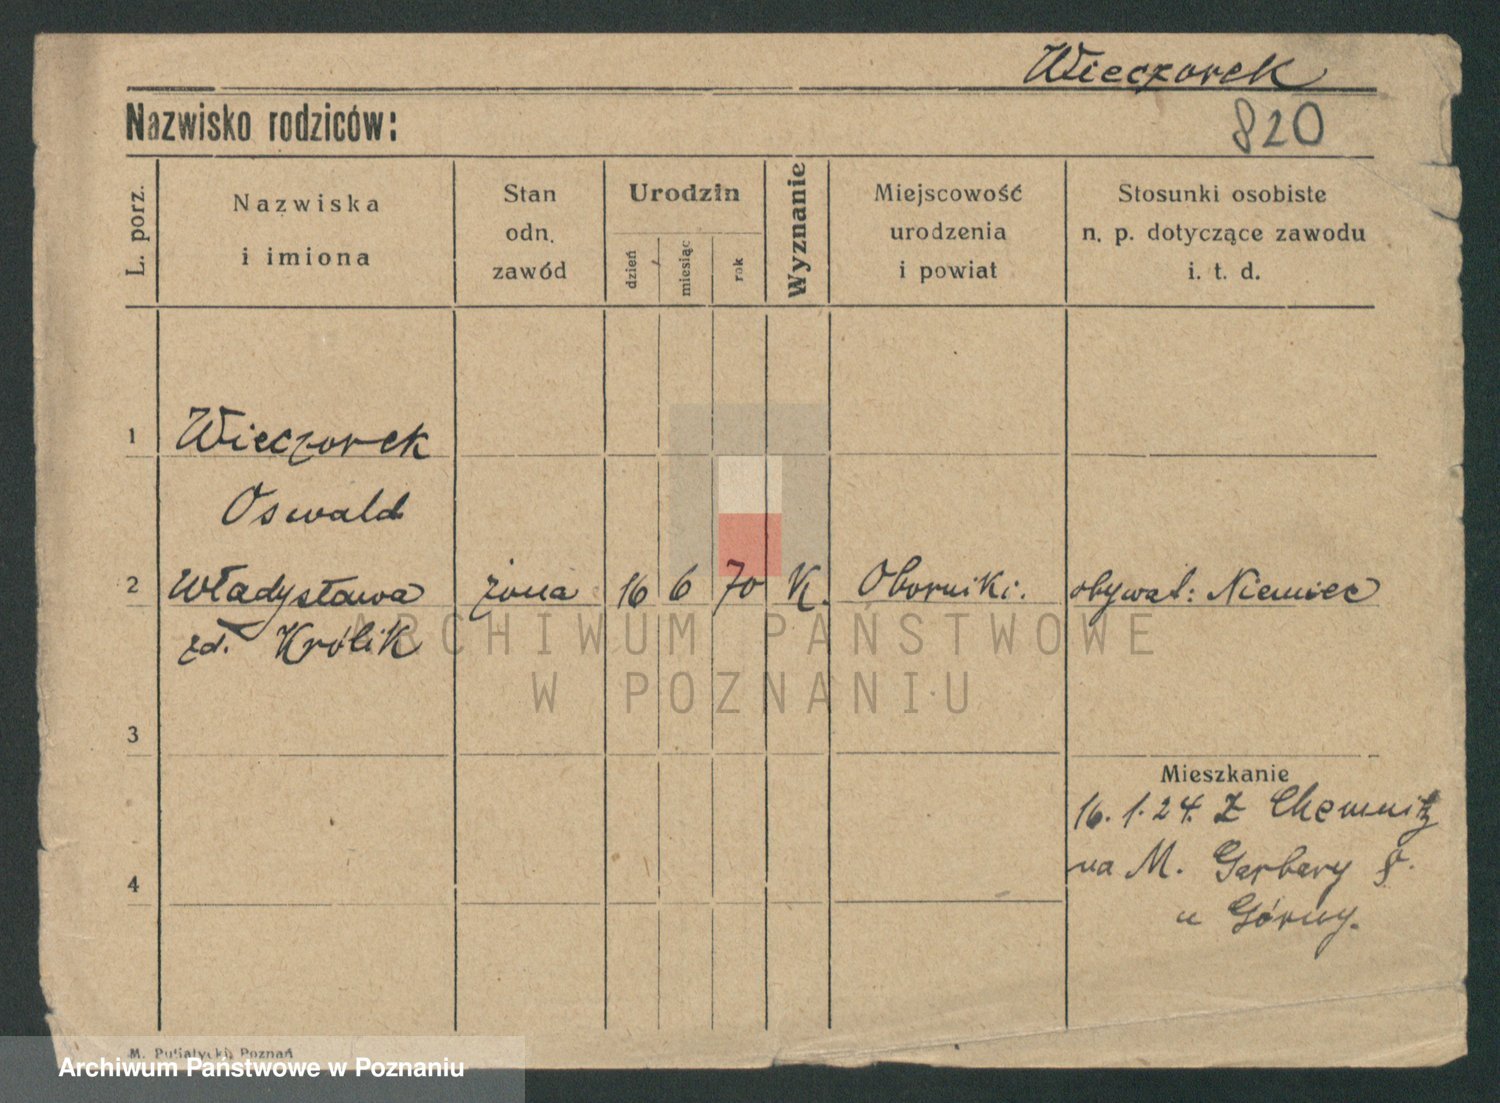 Wieczorek
Nazwisko rodziców:
820
L. porz.
Nazwiska
i imiona
Stan
odn.
zawód
Urodzin
dzień
miesiąc
rok
Wyznanie
Miejscowość
urodzenia
i powiat
Stosunki osobiste
n. p. dotyczące zawodu
i. t. d.
1 Wieczorek
Oswald
2 Władysława żona 16 6 70 K. Oborniki. obywat: Niemiec
zd. Królik
ARCHIWUM PAŃSTWOWE
W POZNANIU
3
Mieszkanie
16. 1. 24. Z Chemnitz
na M. Garbary 8.
4
u Górny.
M. Putiatycki, Poznań
Archiwum Państwowe w Poznaniu